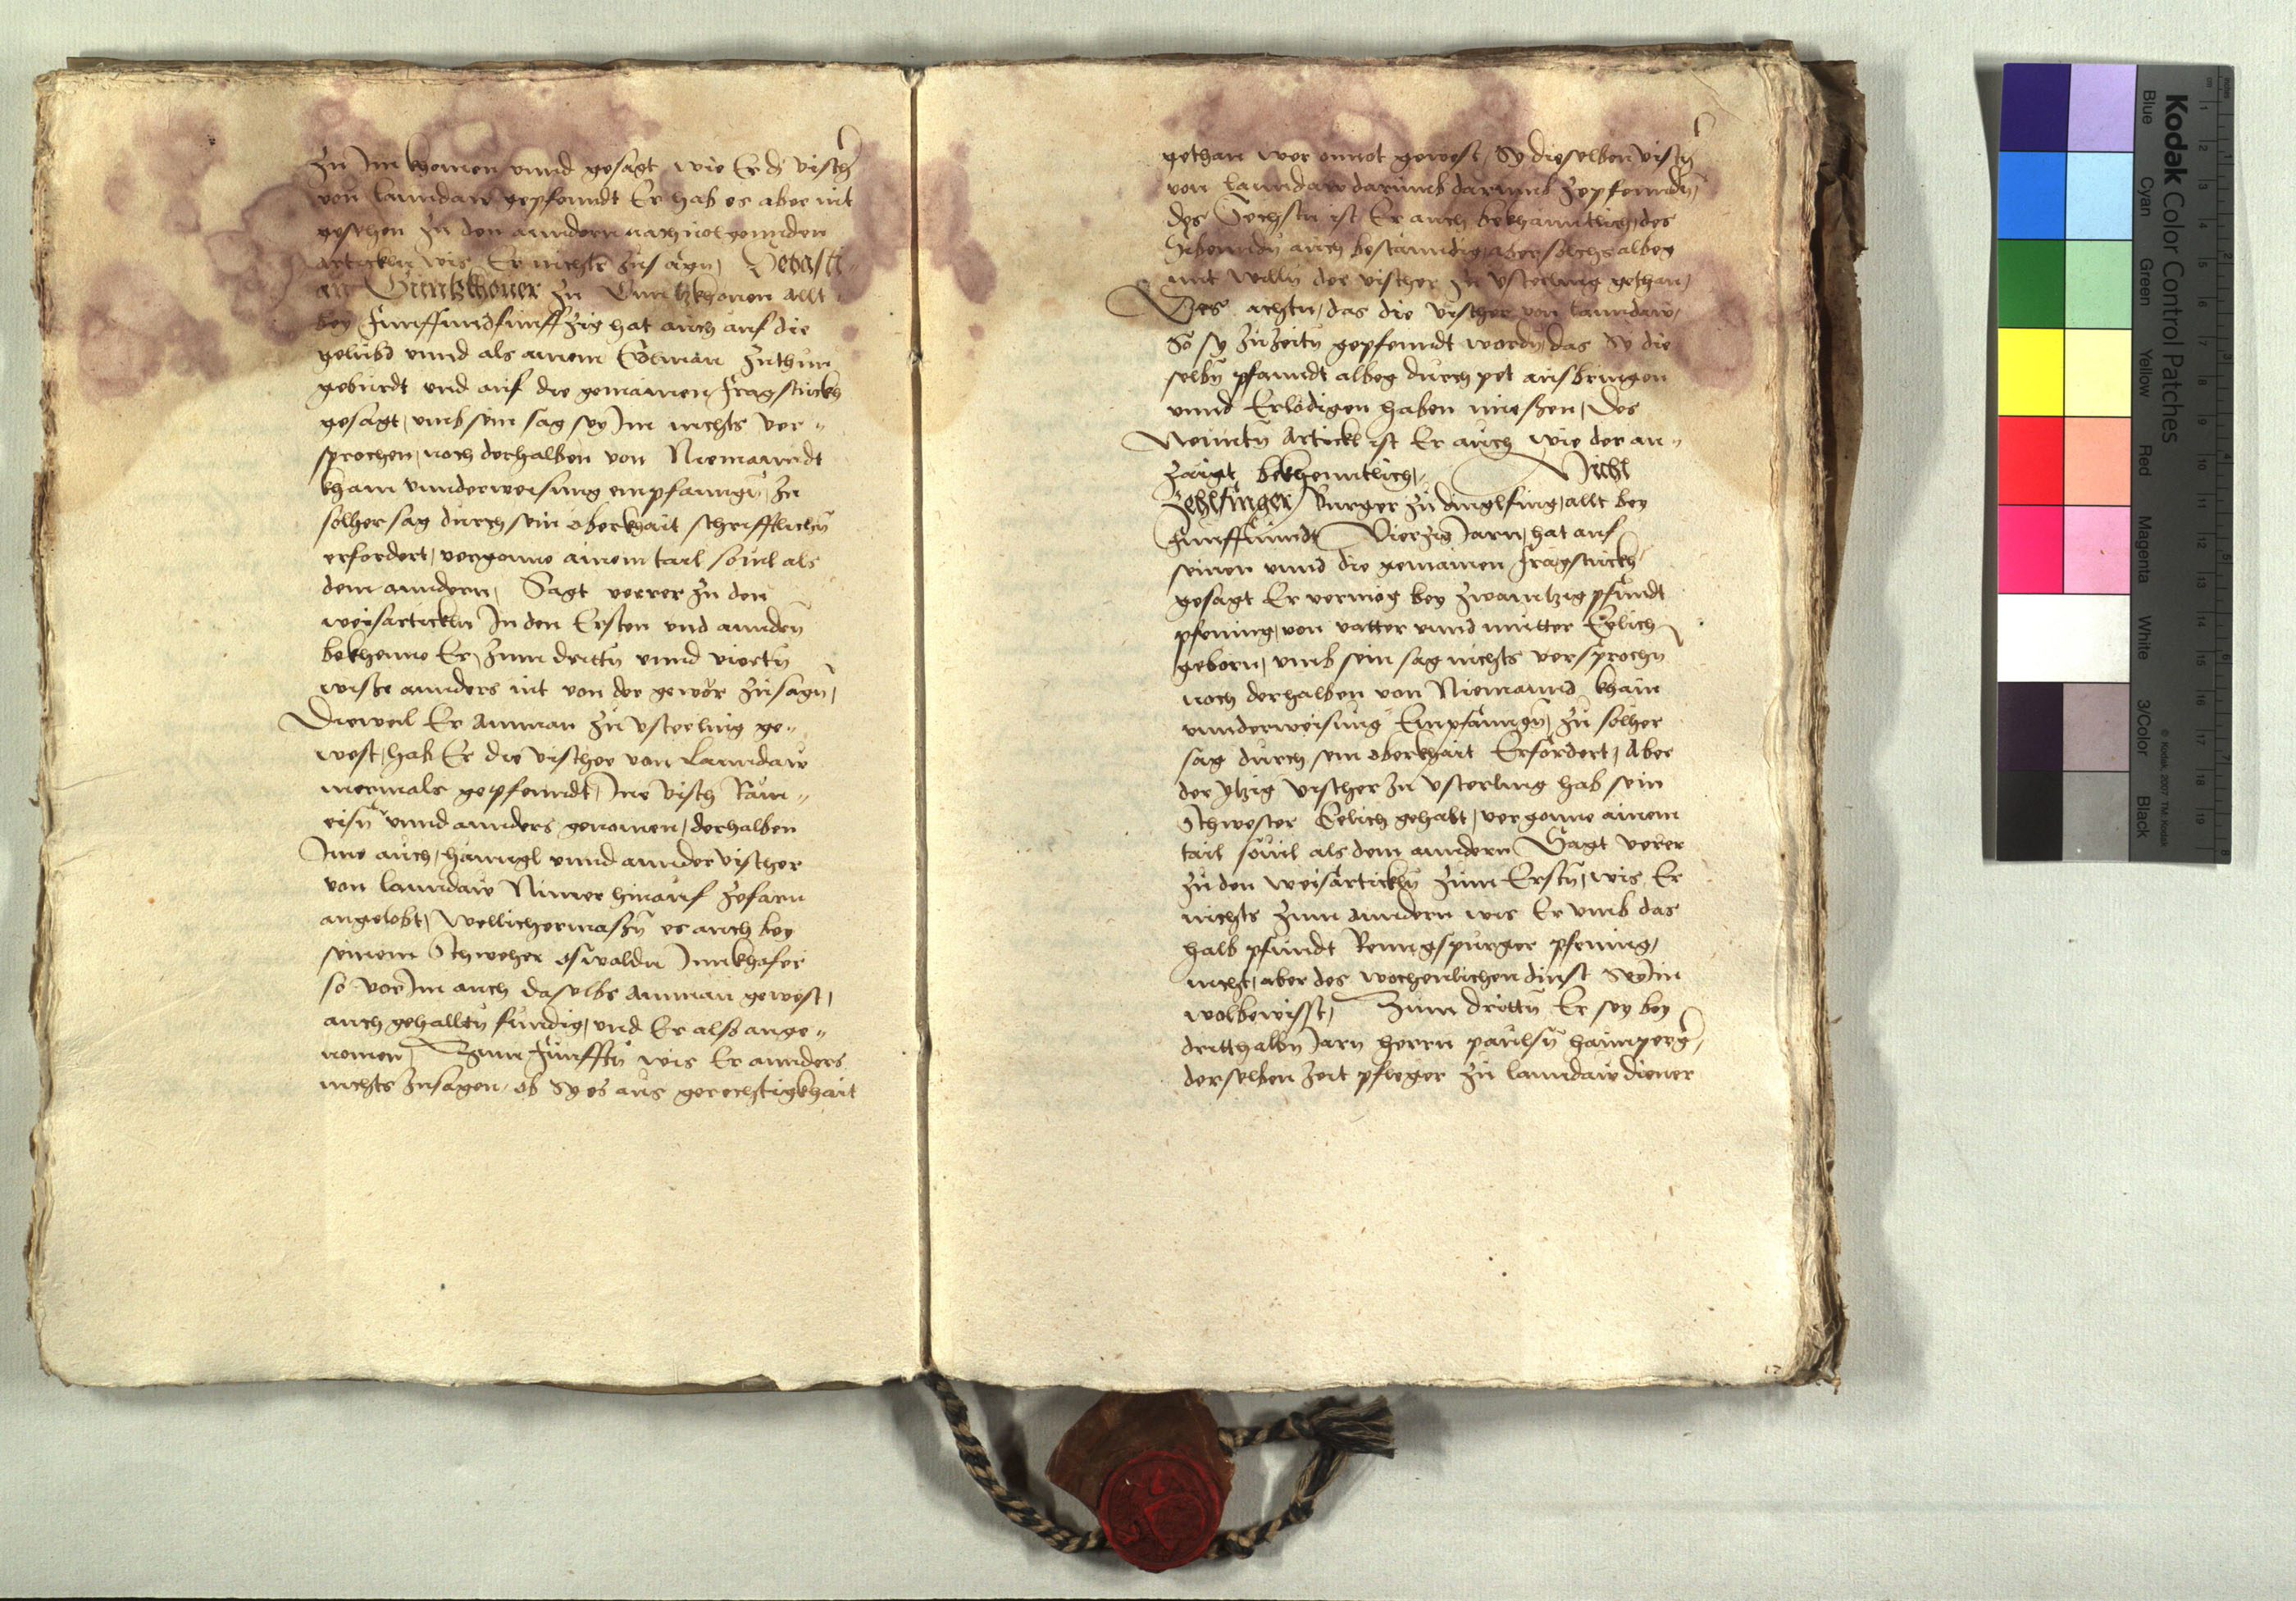 zu Im khomen vnnd gesagt wie Er d visch
von lanndaw gepfenndt Er hab es aber nit
gesehen zu den anndern nachuolgennden
artickln wis Er nichts zusagn, Sebasti-
an Güntzkhouer zu Güntzkhouen allt
bey Funffundfunfftzig hat auch auf die
gelübd vnnd als ainem Edlman zuthun
gebürdt vnd auf die gemainen fragstuckh
gesagt, vmb sein sag sey Im nichts ver-
sprochen, noch derhalben von Niemanndt
kham vnnderweisung empfanngn, zu
solher sag durch sein oberkhait schrifftlichn
erfordert, vergonne ainem tail souil als
dem anndern, Sagt verrer zu den
weisartickln In den Ersten vnd anndern
bekhenne Er, zum drittn vnnd viertn
wisse annders nit von der gewör zusagn,
Dieweil Er Amman zu vsterling ge-
west, hab Er die vischer von Lanndaw
mermals gepfenndt, Ine visch Rain-
eisn vnnd annders genomen, derhalben
Ime auch, hänngl vnnd annder vischer
von lanndaw Nimer hinauf zefarn
angelobt, Wellichermassn es auch bey
seinem Schweher oswalden Innkhofer
so vor Im auch daselbs Amman gewest,
auch gehalltn fündig, vnd Er als ange-
nomen, Zum Fünfftn wis Er annders
nichts zusagen, ob Sy es aus gerechtigkhait
gethan wer onnot gewest, Sy dieselben visch
von lanndaw darumb zepfenndn,
des Sechsten ist Er auch bekhanntlich, des
Sibenndn auch bestanndig, aber solchs albeg
mit willn der vischer zu vsterling gethan,
Des achtn, das die vischer von lanndaw,
So sy zuzeitn gepfenndt wordn, das Sy die
selbn pfanndt albeg durch pet ausbringen
vnnd Erlödigen haben müessen, Des
Neüntn Artickl ist Er auch wie der an-
zaigt bekhenntlich, Michl
Zehlfinger Burger zu dinglfing, allt bey
Funffunndt Vierzig Jarn, hat auf
seinen vnnd die gemainen fragstuckh
gesagt Er vermög bey zwaintzig pfundt
pfening, von vatter vnnd mutter Eelich
geborn, vmb sein sag nichts versprochn
noch derhalben von Niemannd kham
vnnderweisung Empfanngn, zu solher
sag durch sein oberkhait Erfordert, Aber
der ytzig vischer zu vsterling hab sein
Schwester Eelich gehabt, vergonne ainem
tail souil als dem anndern Sagt verer
zu den weisartickln zum Erstn, wis Er
nichts zum anndern wis Er vmb das
halb pfundt Renngspurger pfening,
nicht, aber des wochenlichen dinst Sey Im
wolbewisst, Zum drittn Er sey bey
dritthalbn Jarn herrn paulsn haimperg,
derselben zeit pfleger zu lanndaw diener
17
Kodak Color Control Patches
Blue
Cyan
Green
Yellow
Red
Magenta
White
3/Color
Black
© Kodak, 2007 TM: Kodak